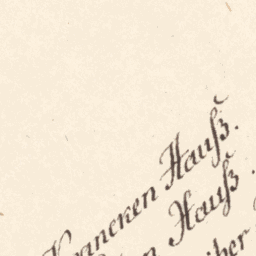 Krancken Hauß.
n Hauß.
iber